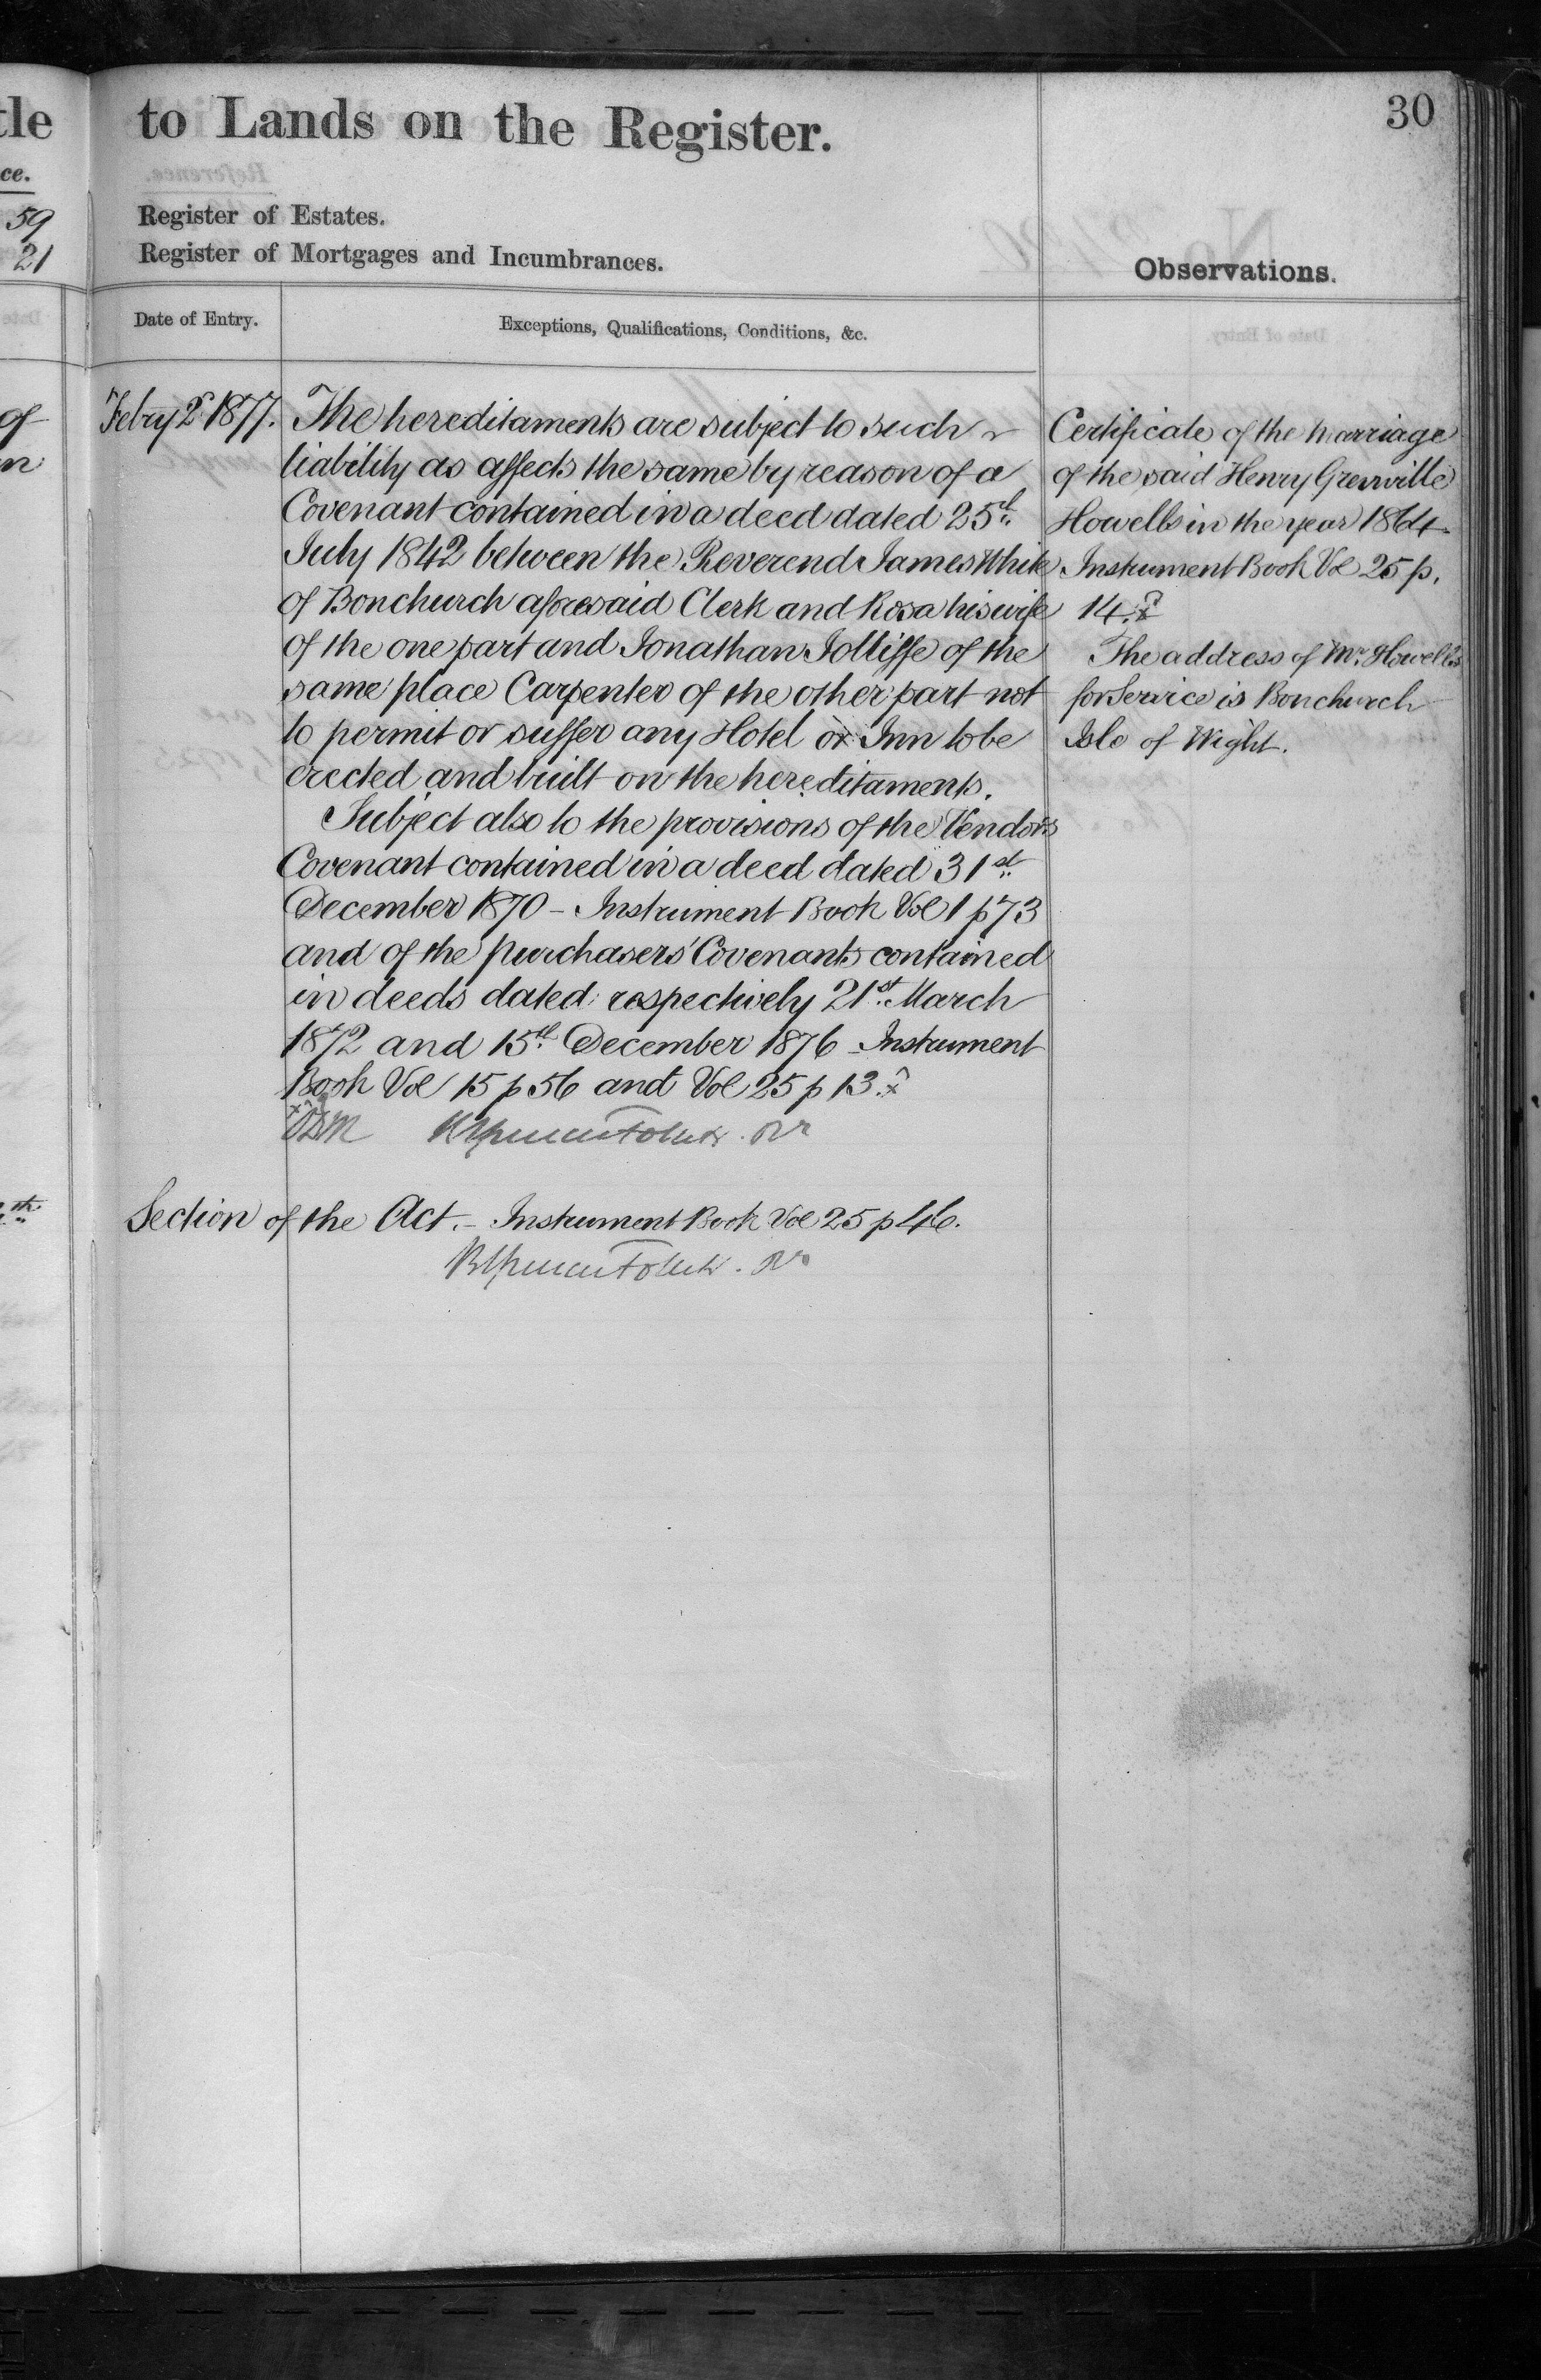 tle
ce.
59
21
of
n
th
to Lands on the Register.
30
Register of Estates.
Register of Mortgages and Incumbrances.
Observations.
Date of Entry.
Exceptions, Qualifications, Conditions, &c.
Febry 2d 1877.
The hereditaments are subject to such
liability as affects the same by reason of a
Covenant contained in a deed dated 25th
July 1842 between the Reverend James White
of Bonchurch aforesaid Clerk and Rosa his wife
of the one part and Jonathan Jolliffe of the
same place Carpenter of the other part not
to permit or suffer any Hotel or Inn to be
erected and built on the hereditaments.
Subject also to the provisions of the Vendors
Covenant contained in a deed dated 31st
December 1870 - Instrument Book Vol 1 p 73
and of the purchasers' Covenants contained
in deeds dated respectively 21st March
1872 and 15th December 1876 - Instrument
Book Vol 15 p 56 and Vol 25 p 13.
Section of the Act. - Instrument Book Vol 25 p 46.
Certificate of the marriage
of the said Henry Grenville
Howells in the year 1864
Instrument Book Vol 25 p.
14.
The address of Mr. Howells
for Service is Bonchurch
Isle of Wight.